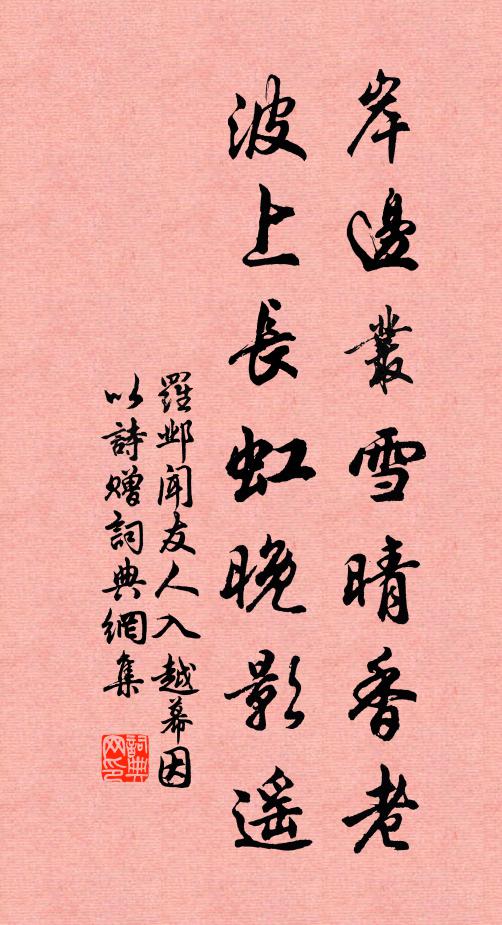 岸邊叢雪晴香老
波上長虹晚影遥
羅鄴聞友人入越幕因
以詩贈詞典網集
詞典网印